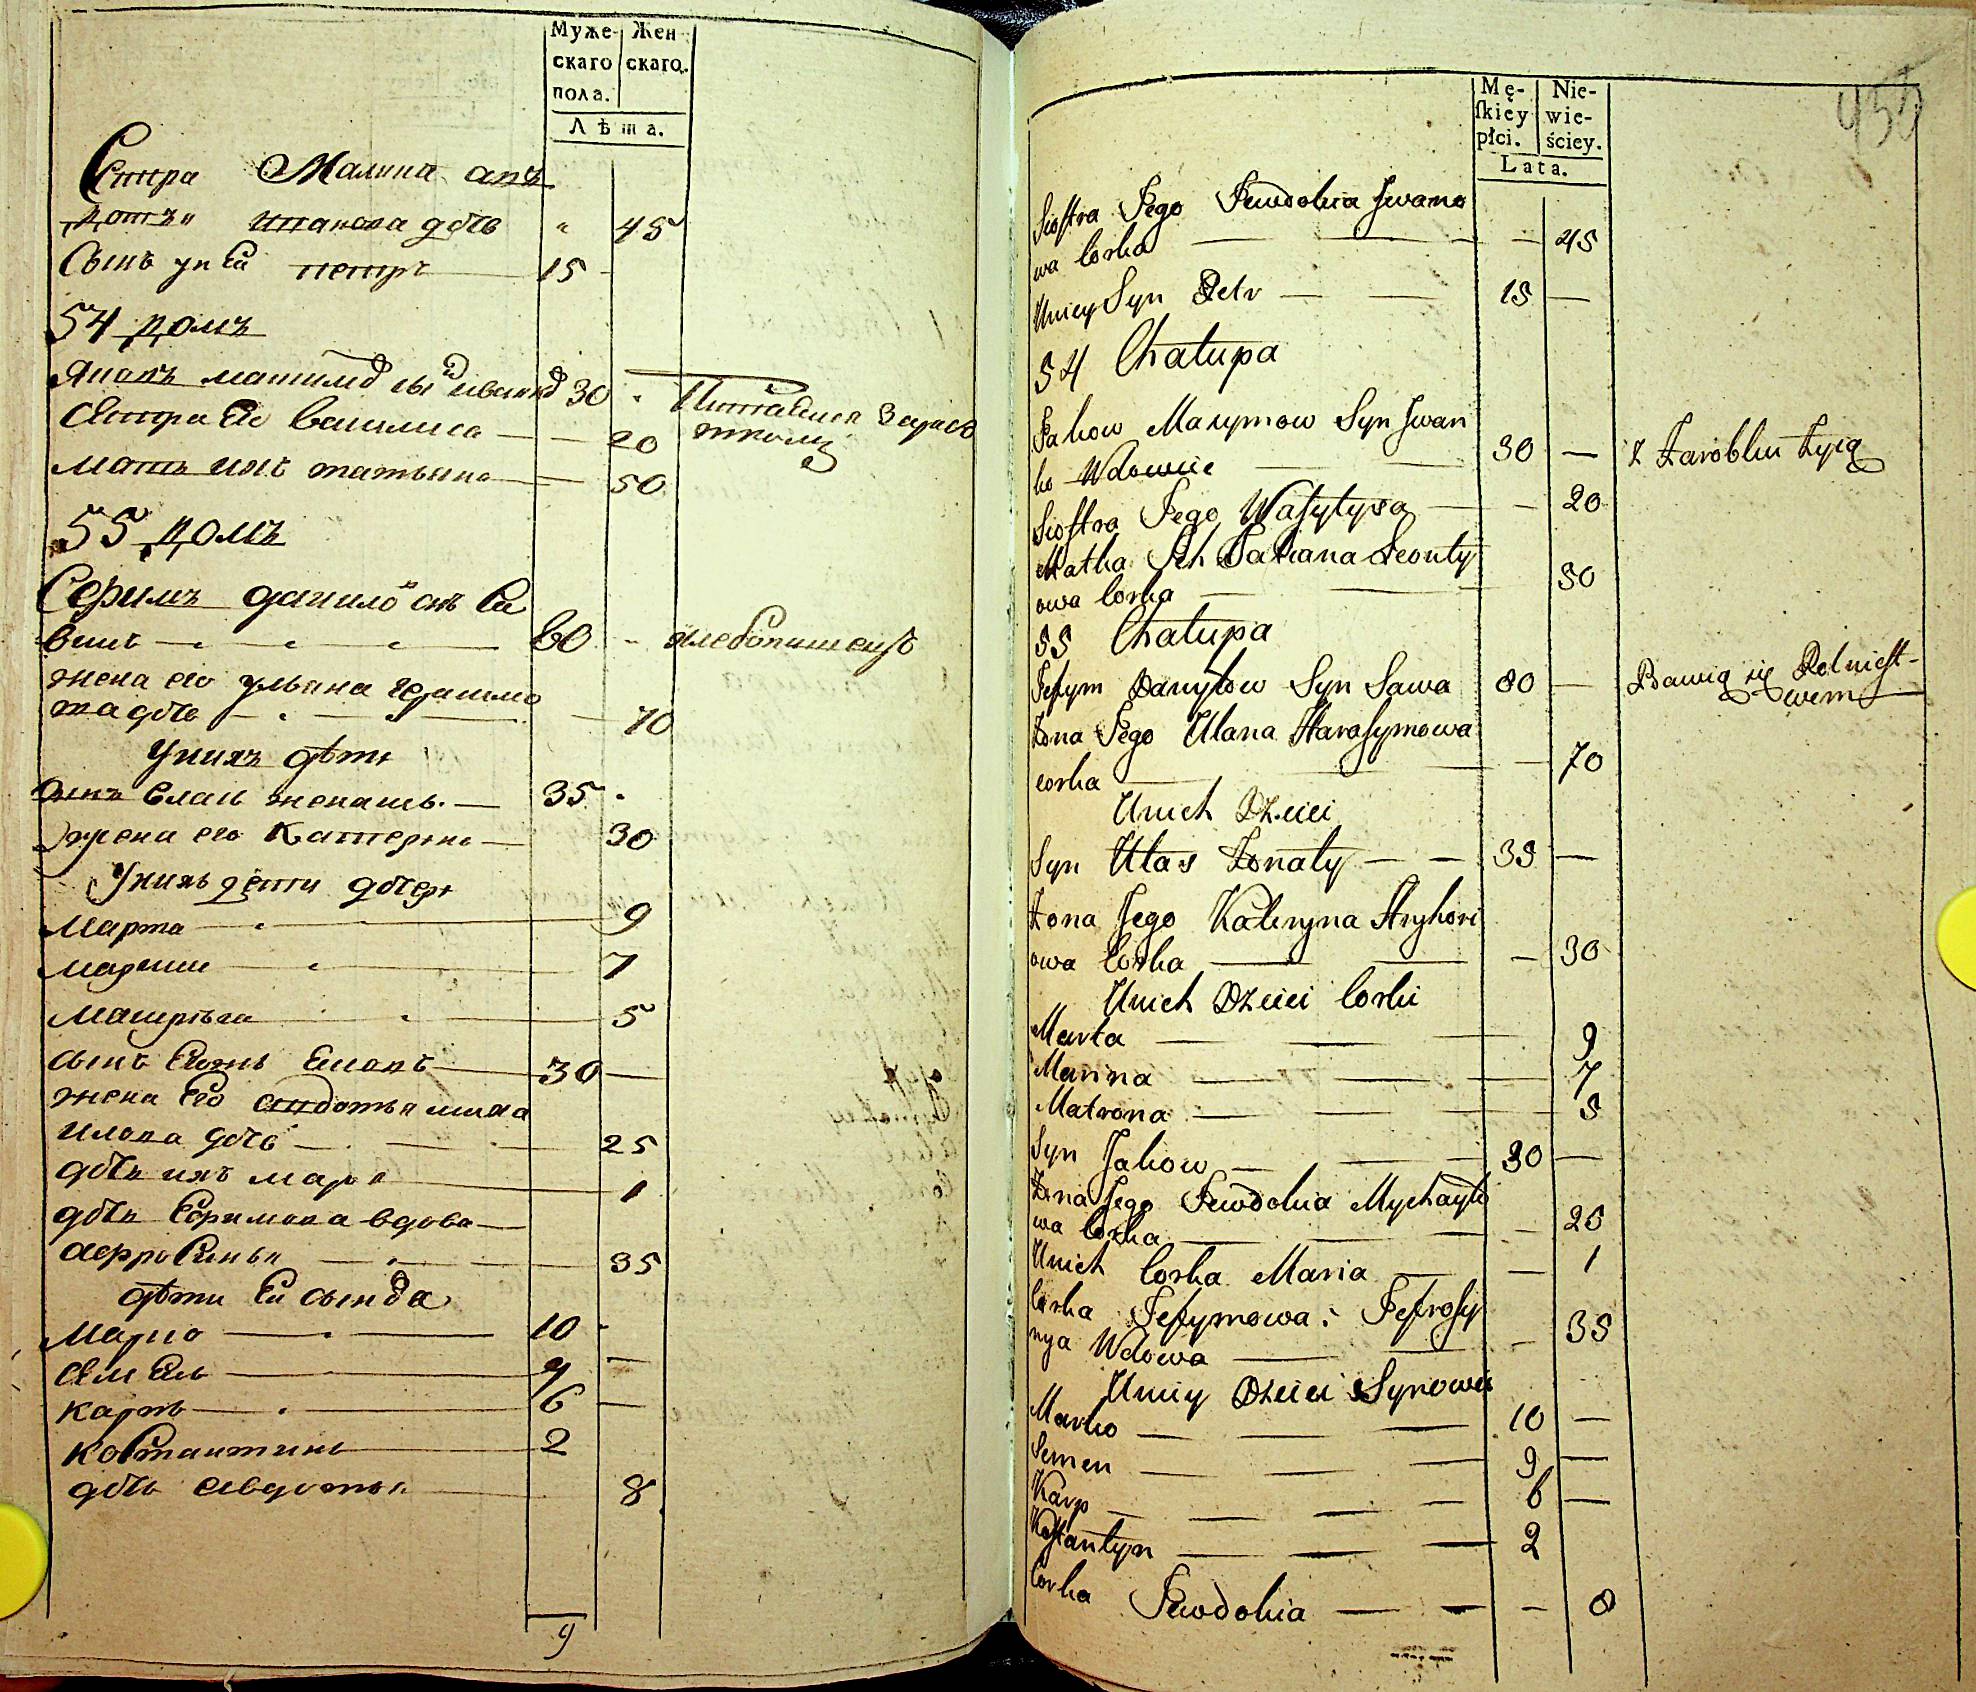 Муже-
скаго
пола.
Жен
скаго.
Лѣта.
Сестра Малина
Иванова дочь " 45
Сынъ унеи петръ 15
54 домъ
Яковъ максимов сы 30
Сестра Ево василиса 20
Мать ихъ татьяна 50
55 домъ
Ефимъ данило снъ Са
вичъ 60 хлебопашецъ
жена его ульяна Герасимо
ва дочь 70
Унихъ дѣти
сынъ Влась женатъ 35
жена его Катерина 30
Унихъ дети дочери
Марта 9
Марина 7
Матрона 5
сынъ Яковъ 30
жена Его Явдотья миха
илова дочь 25
дочь ихъ мария 1
дочь Ефимова вдова
Аефросинья 35
дѣти Еи сынова
Марко 10
Семенъ 9
Карпъ 6
Костантинъ 2
дочь Явдотья 8
9
Mę-
ſkiey
płci.
Nie-
wie-
ściey.
Lata.
Siostra Jego Jewdokia Jwano
wa Corka 45
Uniey Syn Petr 15
54 Chałupa
Jakow Maxymow Syn Jwan
ko Wdowiec 30 — z Zarobku Zyią
Siostra Jego Wasylysa 20
Matka Jch Tatiana Leonty
owa Corka 50
55 Chałupa
Jefym Danyłow Syn Sawa 80 — Bawią się Rolnict-
wem
Zona Jego Ulana Harasymowa
corka 70
Unich Dzieci
Syn Ułas Zonaty 35
Zona Jego Kateryna Hryhori
owa Corka 30
Unich Dzieci Corki
Marta 9
Marina 7
Matrona 5
Syn Jakow 30
Zona Jego Jewdokia Mychayło
wa Corka 25
Unich Corka Maria 1
Corka Jefymowa: Jefrosy
nya Wdowa 35
Uniey Dzieci Synowie
Marko 10
Semen 9
Karp 6
Kostantyn 2
Corka Jewdokia 8